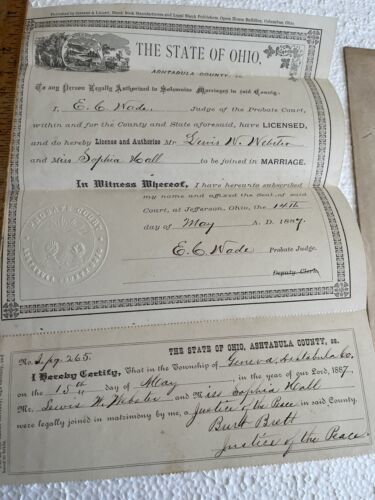 THE STATE OF OHIO,
ASHTABULA COUNTY, ss.
To any Person Legally Authorized to Solemnize Marriages in said County:
I, E. C. Wade. Judge of the Probate Court,
within and for the County and State aforesaid, have LICENSED,
and do hereby License and Authorize Mr. Lewis W. Webster
and Miss Sophia Hall to be joined in MARRIAGE.
In Witness Whereof, I have hereunto subscribed
my name and affixed the Seal of said
Court, at Jefferson, Ohio, the 14th
day of May A. D. 1887.
E. C. Wade Probate Judge.
Deputy Clerk.
PROBATE COURT
ASHTABULA COUNTY
THE STATE OF OHIO, ASHTABULA COUNTY, ss.
No. S. pg. 265.
I Hereby Certify, That in the Township of Geneva, Ashtabula Co.
on the 15th day of May in the year of our Lord, 1887,
Mr. Lewis W. Webster and Miss Sophia Hall
were legally joined in matrimony by me, a Justice of the Peace in said County.
Burt Brett
Justice of the Peace